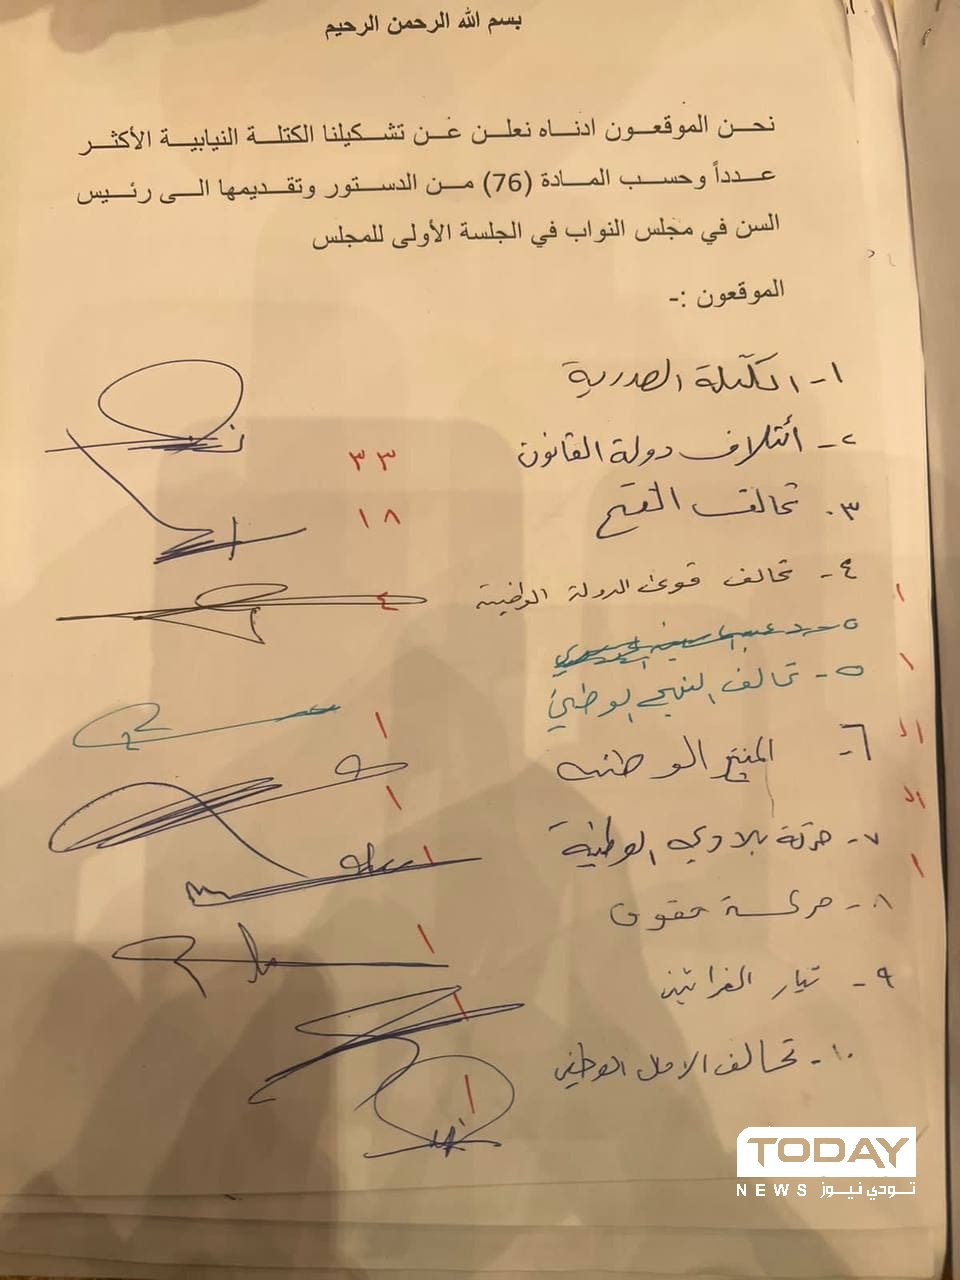 بسم الله الرحمن الرحيم
نحن الموقعون ادناه نعلن عن تشكيلنا الكتلة النيابية الأكثر
عدداً وحسب المادة (76) من الدستور وتقديمها الى رئيس
السن في مجلس النواب في الجلسة الأولى للمجلس
الموقعون :-
١- الكتلة الصدرية
٢- أئتلاف دولة القانون ٣٣
٣- تحالف الفتح ١٨
٤- تحالف قوى الدولة الوطنية ٤
٥- تحالف النهج الوطني ١
٦- المنتج الوطنية ١
٧- حركة بلادي الوطنية ١
٨- حركة حقوق ١
٩- تيار الفراتين ١
١٠- تحالف الامل الوطني ١
TODAY
NEWS تودي نيوز